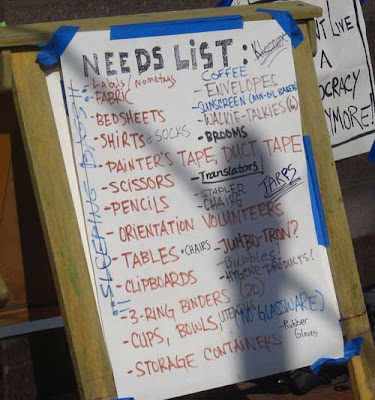 NEEDS LIST:
Labels/Nametags
FABRIC
- BEDSHEETS
- SHIRTS & SOCKS
- PAINTER'S TAPE, DUCT TAPE
- SCISSORS
- PENCILS
- ORIENTATION VOLUNTEERS
- TABLES + CHAIRS
- CLIPBOARDS
- 3-RING BINDERS (20)
- CUPS, BOWLS, UTENSILS (NO GLASSWARE)
- STORAGE CONTAINERS
COFFEE
- ENVELOPES
- SUNSCREEN (NON-OIL BASED)
- WALKIE-TALKIES (6)
- BROOMS
- Translators
- STAPLER
- CHAIRS
TARPS
- JUMBO-TRON?
- Bubbles!
- HYGIENE PRODUCTS!
- Rubber
Gloves
SLEEPING BAGS!!
LIVE
A
OCRACY
YMORE!